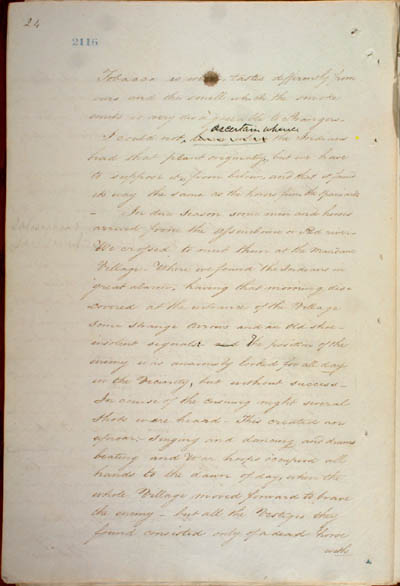 24
2116
Tobacco is tastes differently from
ours and the smell which the smoke
emits is very disagreeable to Strangers.
ascertain whence
I could not the Indians
had that plant originally, but we have
to suppose it from below, and that it found
its way the same as the horses from the Spaniards
– In due season some men and horses
arrived from the Assiniboine or Red river
We crossed to meet them at the Mandane
Village. Where we found the Indians in
great alarm, having that morning dis-
covered at the entrance of the Village
some strange Arrows and an Old shoe
insolent signals: and The position of the
enemy was anxiously looked for all day
in the Vicinity, but without success –
In course of the ensuing night several
Shots were heard – This created an
uproar. Singing and dancing and drums
beating and War hoops occupied all
hands to the dawn of day, when the
whole Village moved forward to brave
the enemy – but all the Vestiges they
found consisted only of a dead horse
with